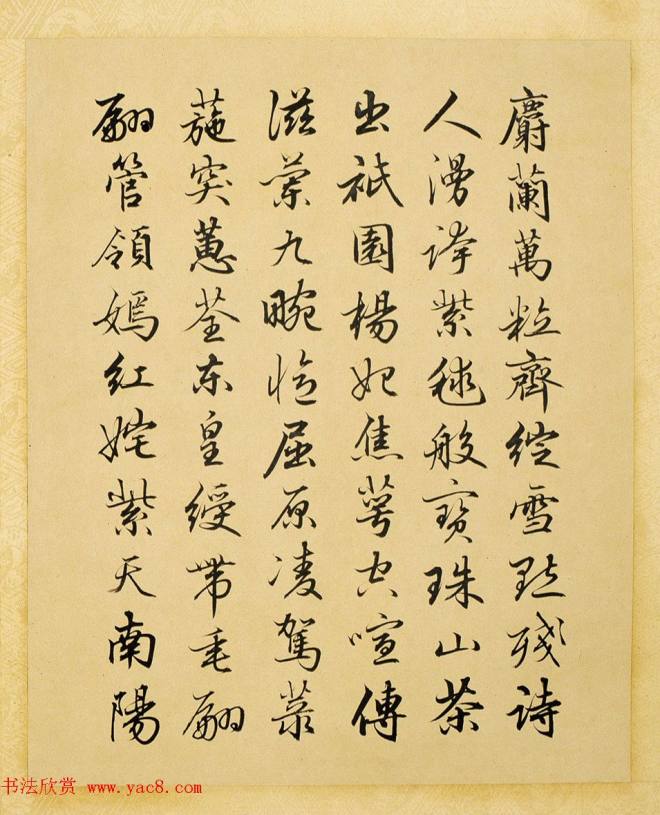 麝蘭萬粒齊綻雪點殘詩
人漫誇紫毬般寶珠山茶
出祇園楊妃焦萼空喧傳
滋蘭九畹憶屈原凌駕菉
葹突蕙荃東皇綬帶垂翩
翩管領嫣紅姹紫天南陽
书法欣赏 www.yac8.com